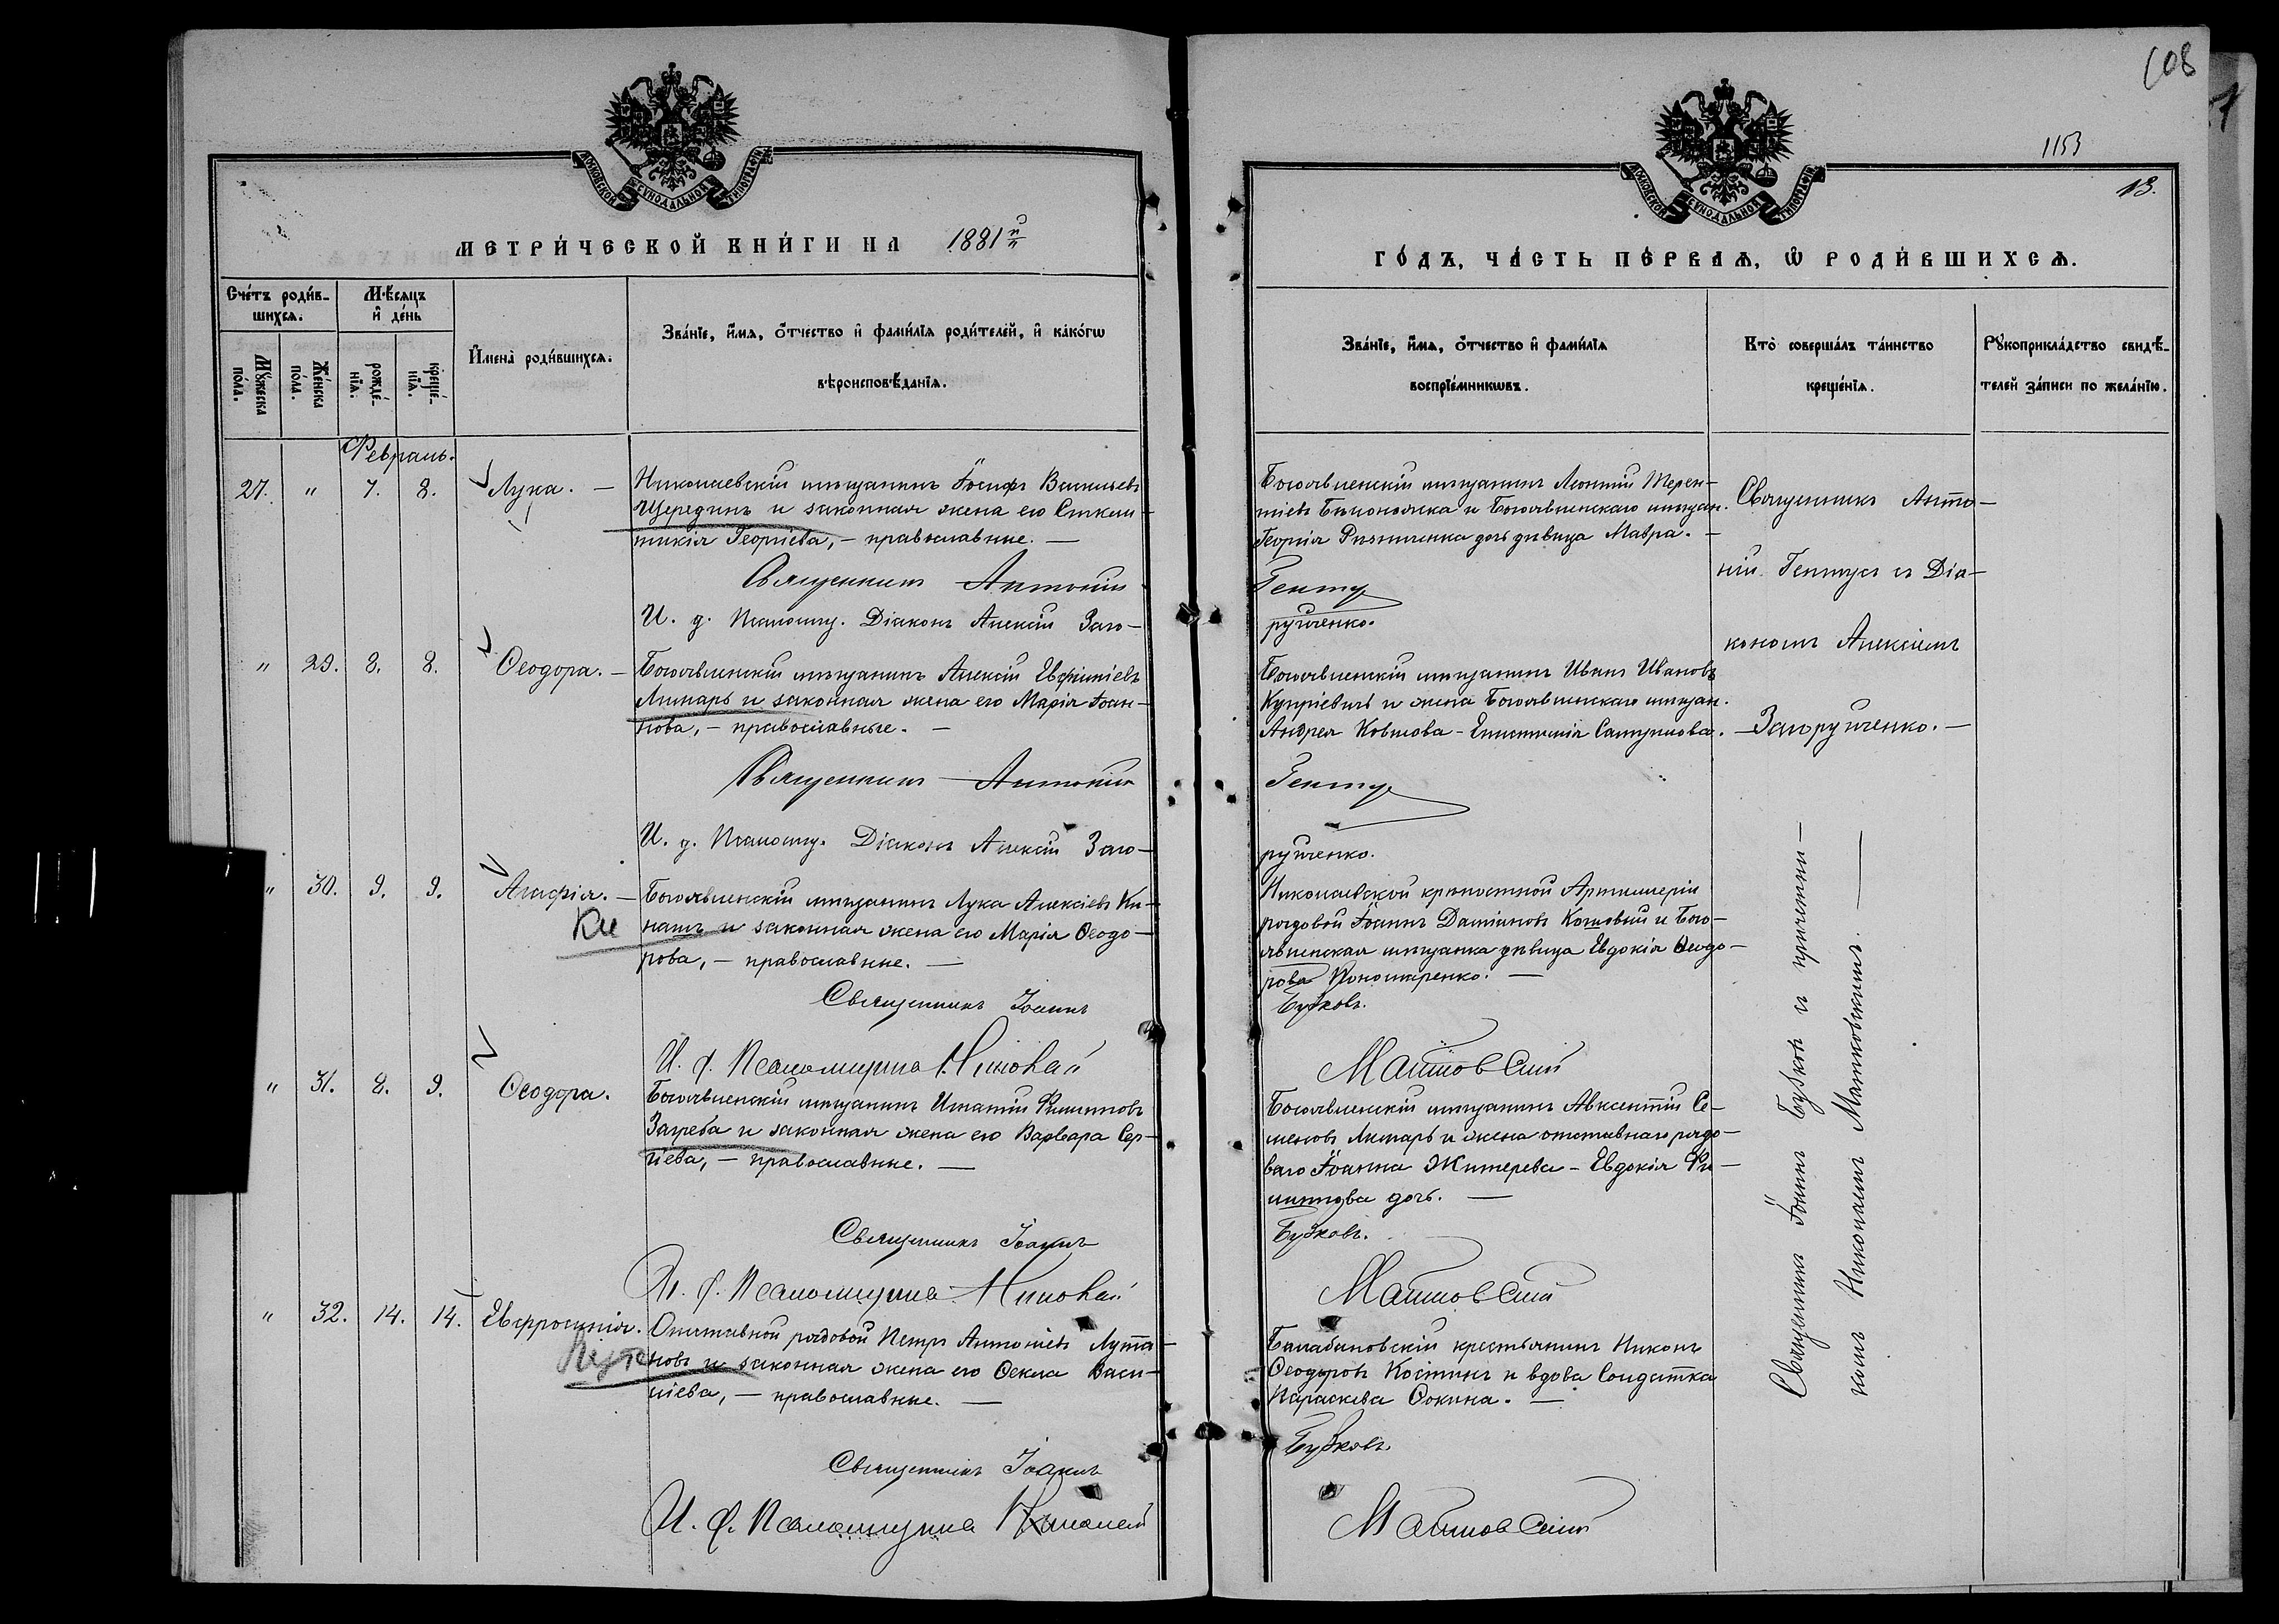 108
1153
13.
МОСКОВСКОЙ СѴНОДАЛЬНОЙ ТИПОГРАФІИ
МОСКОВСКОЙ СѴНОДАЛЬНОЙ ТИПОГРАФІИ
МЕТРИ́ЧЕСКОЙ КНИ́ГИ НА 1881й
ГО́ДЪ, ЧА́СТЬ ПЕ́РВАѦ, Ѡ РОДИ́ВШИХСѦ.
Сче́тъ роди́в-
шихся.
Мѣ́сяцъ
и де́нь
Мꙋ́жеска
по́ла.
Же́нска
по́ла.
рожде́-
нїя.
креще́-
нїя.
Имена̀ роди́вшихся.
Зва́нїе, и́мя, о́тчество и фами́лїя роди́телей, и како́гѡ
вѣроисповѣ́данїя.
Зва́нїе, и́мя, о́тчество и фами́лїя
воспрїе́мникѡвъ.
Кто̀ соверша́лъ та́инство
креще́нїя.
Рꙋкоприкла́дство свидѣ́-
телей за́писи по жела́нїю.
Февраль.
27. " 7. 8. Лука. —
Николаевскій мѣщанинъ Іосифъ Васильевъ
Щерединъ и законная жена его Синкли-
тикія Георгіева, — православные. —
Священникъ Антоній
И. д. Псаломщ. Діаконъ Алексій Заго-
Богоявленскій мѣщанинъ Леонтій Терен-
тіевъ Бѣлоножка и Богоявленскаго мѣщан.
Георгія дочь дѣвица Мавра. —
Генту
руйченко.
Священникъ Анто-
ній Гентуъ съ Діа-
кономъ Алексіемъ
— Загоруйченко. —
" 29. 8. 8. Ѳеодора. —
Богоявленскій мѣщанинъ Алексій Евфиміевъ
Лимарь и законная жена его Марія Іоан-
нова, — православные. —
Священникъ Антоній
И. д. Псаломщ. Діаконъ Алексій Заго-
Богоявленскій мѣщанинъ Иванъ Ивановъ
Купріевичъ и жена Богоявленскаго мѣщан.
Андрея Ковтова - Епистимія Сатурнова.
Генту
руйченко.
" 30. 9. 9. Агафія. —
Ки
Богоявленскій мѣщанинъ Лука Алексіевъ Ки-
нашъ и законная жена его Марія Ѳеодо-
рова, — православные. —
Священникъ Іоаннъ
И. д. Псаломщика Николай
Николаевской крѣпостной Артиллеріи
рядовой Іоаннъ Даміановъ Козловый и Бого-
явленская мѣщанка дѣвица Евдокія Ѳеодо-
рова Пономаренко. —
Бубковъ.
Матковскій
" 31. 8. 9. Ѳеодора.
Богоявленскій мѣщанинъ Игнатій Филипповъ
Загреба и законная жена его Варвара Сер-
гіева, — православные. —
Священникъ Іоаннъ
И. д. Псаломщика Николай
Богоявленскій мѣщанинъ Авксентій Се-
меновъ Лимарь и жена отставнаго рядо-
ваго Іоанна Жигерева - Евдокія Фи-
липпова дочь. —
Бубковъ.
Матковскій
" 32. 14. 14. Евфросинія.
Лута
Отставной рядовой Петръ Антоніевъ Лута-
новъ и законная жена его Ѳекла Васи-
ліева, — православные. —
Священникъ Іоаннъ
И. д. Псаломщика Николай
Балабановскій крестьянинъ Никонъ
Ѳеодоровъ Костинъ и вдова Солдатка
Параскева Сокина. —
Бубковъ.
Матковскій
Священникъ Іоаннъ Бубковъ съ причетни-
комъ Николаемъ Матковскимъ. —